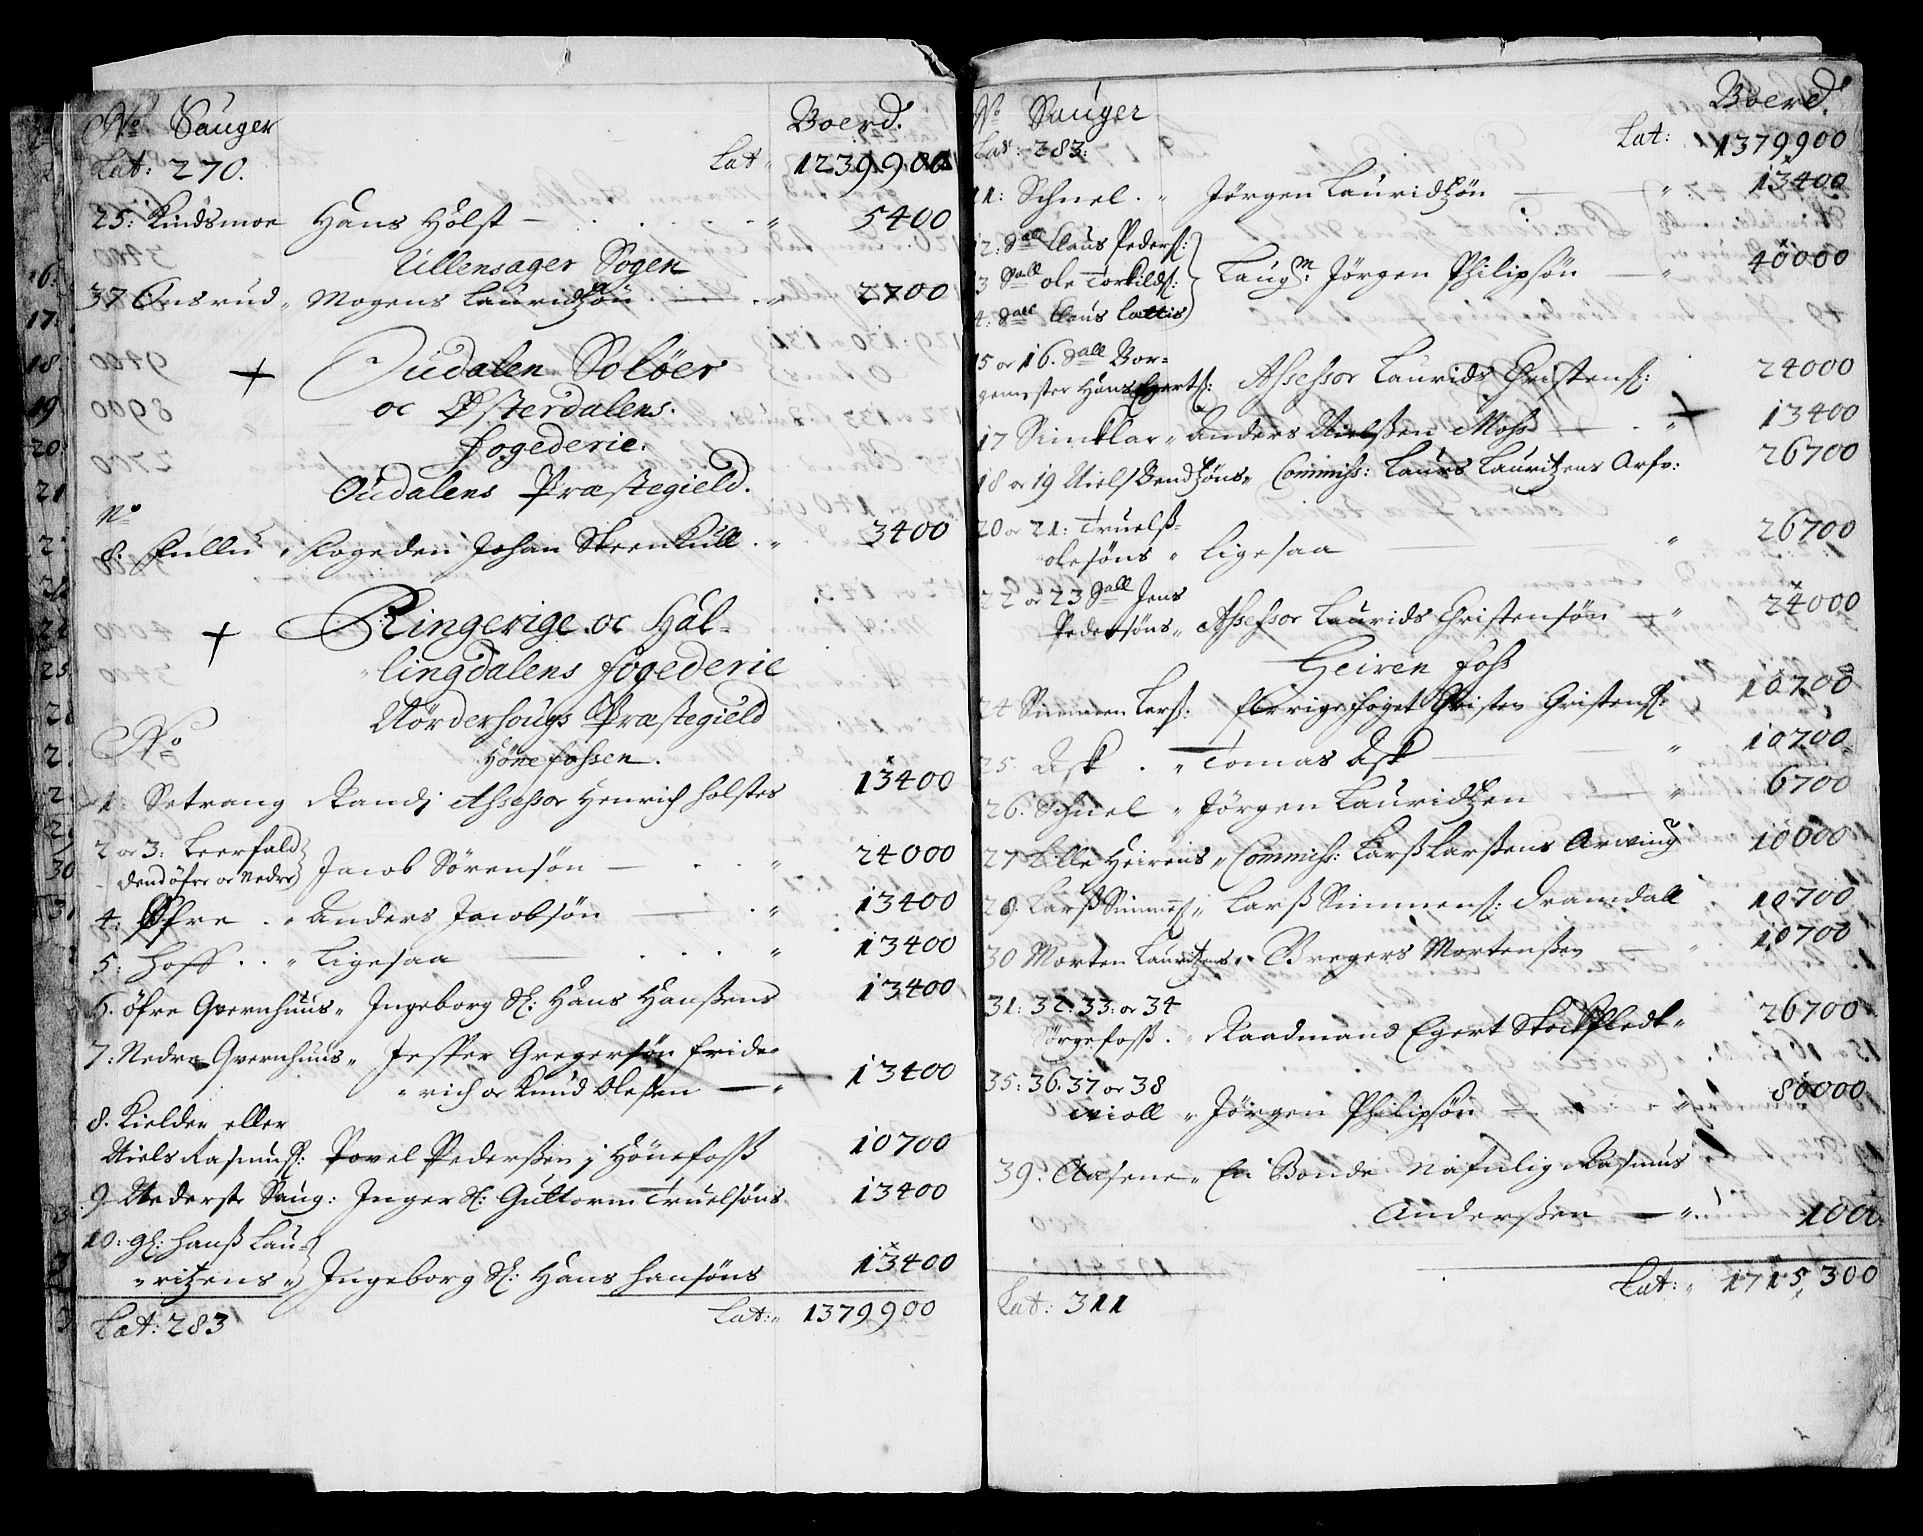 No Sauger Boerd.
Lat: 270. Lat 1239900
25: Kindsmoe Hans Holst 5400
Ullensager Sogen
37 Onsrud Mogens Lauridtzøn 2700
+ Oudalen Soløer
oc Østerdalens.
fogederie.
Oudalens Præstegield.
No
8. Fullu fogeden Johan Steenkull 3400
+ Ringerige oc Hal-
lingdalens fogederie
Nørderhougs Præstegield
No
Hønefossen.
1: Setrang Randj Assessor Henrich Holstes 13400
2 or 3: Leerfald
dend öfre or Nedre Jacob Sørensøn 24000
4: Øfre Anders Jacobsøn 13400
5: Hoff Ligesaa 13400
6. öfre Qvernhuus Ingeborg Sl: Hans Hanßens 13400
7: Nedre Qvernhuus Jesper Gregersøn fride-
rich or Knud Olesen 13400
8. Kielder eller
Niels Rasmuß: Povel Pederßen j Hönefoß 10700
9 Nederste Saug: Inger Sl: Guttorm Truelsøns 13400
10: gl: Hanß Lau-
ritzens Ingeborg Sl: Hans Hansøns 13400
Lat: 283 Lat: 1379900
No Sauger Boerd.
Lat: 283: Lat: 1379900
11: Schnel. Jörgen Lauridtzön 13400
12: Sall Claus Peders:
3 Sall ole Torkilds: Laugm Jörgen Philipsøn 40000
4: Sall Claus Lattis
15 or 16. Sall Bor-
gemester Hans Egertß: Assessor Laurids Christens: 24000
17 Simklar Anders Nielßen Moss 13400
18 or 19 Niels Bendtzøns Commiss: Laurs Lauritzens Arfv: 26700
20 or 21: Truelß
olesøns Ligesaa 26700
22 or 23 Sall Jens
Pedersøns Assessor Laurids Christensøn 24000
Heiren foss
24 Simmen Larß: Fhrrige foget Christen Christens: 10700
25. Ask Tomas Ask 10700
26. Schnel Jörgen Lauridtzen 6700
27 Lille Heirens Commiss: Larß Larßens Arwing 10000
28. Larß Simmens Larß Simmens: Dramdall 10700
30 Morten Lauritzens Bregers Mortenßen 10700
31: 32. 33: or 34
Sørgefoß. Raadmand Egert Stockfledt 26700
35: 36. 37 or 38
Wioll Jörgen Philipsøn 80000
39: Aasene En Bonde Nafnlig Rasmus
Anderßen 100
Lat: 311 Lat: 1715300